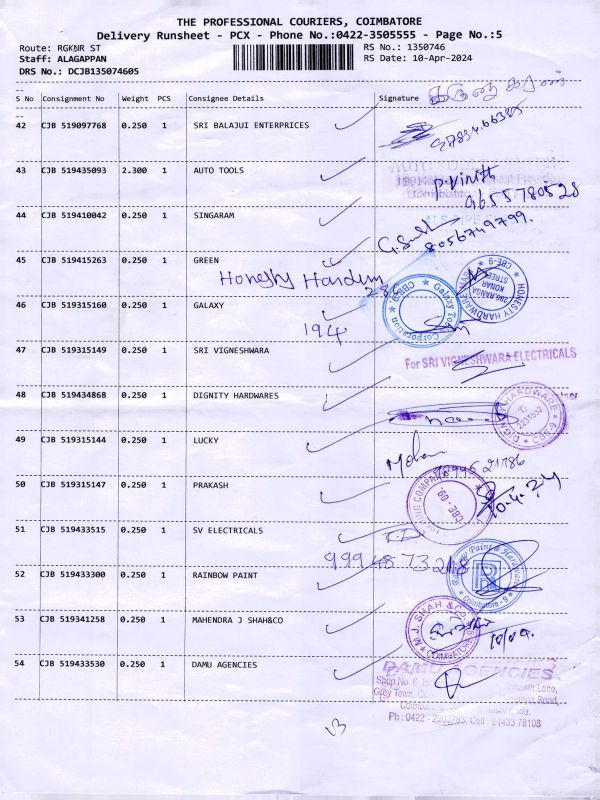 THE PROFESSIONAL COURIERS, COIMBATORE
Delivery Runsheet - PCX - Phone No.:0422-3505555 - Page No.:5
Route: RGKNR ST
RS No.: 1350746
Staff: ALAGAPPAN
RS Date: 10-Apr-2024
DRS No.: DCJB135074605
S No Consignment No Weight PCS Consignee Details Signature
42 CJB 519097768 0.250 1 SRI BALAJUI ENTERPRICES
43 CJB 519435093 2.300 1 AUTO TOOLS
P.Vinith
9655780528
44 CJB 519410042 0.250 1 SINGARAM
8056749799.
45 CJB 519415263 0.250 1 GREEN
HONESTY HARDWARE MART
286, RANGAI KONAR STREET
CBE-9
46 CJB 519315160 0.250 1 GALAXY
194
Galaxy Tool Corporation
CBE-9
47 CJB 519315149 0.250 1 SRI VIGNESHWARA
For SRI VIGNESHWARA ELECTRICALS
48 CJB 519434868 0.250 1 DIGNITY HARDWARES
49 CJB 519315144 0.250 1 LUCKY
Mohan
50 CJB 519315147 0.250 1 PRAKASH
10.4.24
51 CJB 519433515 0.250 1 SV ELECTRICALS
52 CJB 519433300 0.250 1 RAINBOW PAINT
Rainbow Paint & Hardware
Coimbatore - 9
53 CJB 519341258 0.250 1 MAHENDRA J SHAH&CO
M.J. SHAH & CO
COIMBATORE
54 CJB 519433530 0.250 1 DAMU AGENCIES
DAMU AGENCIES
Shop No. 6
Grey Town,
Cell : 94433 78108